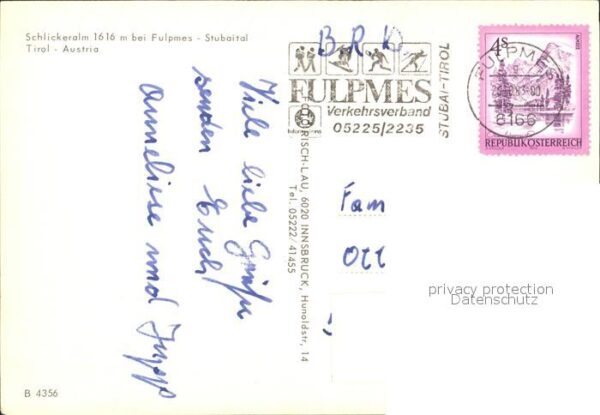 Schlickeralm 1616 m bei Fulpmes - Stubaital
Tirol - Austria
Viele liebe Grüße
senden Euch
Anneliese und Jupp
B 4356
RISCH-LAU, 6020 INNSBRUCK, Hunoldstr. 14
Tel. 05222/41455
BRD
FULPMES
Verkehrsverband
05225/2235
STUBAI-TIROL
4s
ALMSEE
REPUBLIK ÖSTERREICH
FULPMES
6166
Fam
Ott
privacy protection
Datenschutz